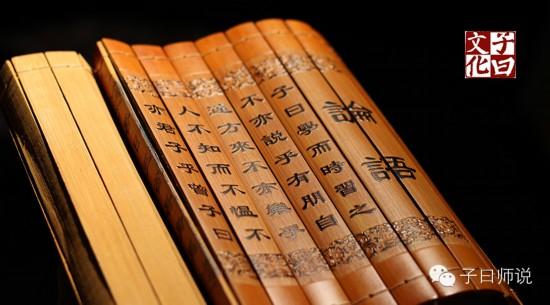 子曰
文化
論語
子曰學而時習之
不亦說乎有朋自
遠方來不亦樂乎
人不知而不慍不
亦君子乎曾子曰
子曰师说